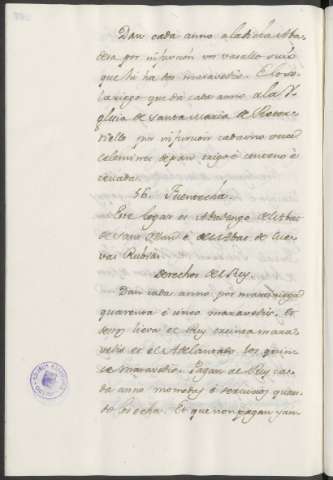 Dan cada anno a la dicha Aba-
desa por infurción un vasallo suio
que hi ha dos maravedis. E los so-
lariegos que dá cada anno a la Y-
glesia de Santa Maria de
por infurcion cada uno
celemines de pan trigo é centeno é
cevada.
56. Fuentecha.
Este logar es Abadengo del Abat
de Sant é del Abat de Cue-
vas Rubias
Derechos del Rey.
Dan cada anno por martiniega
quarenta é cinco maravedis. Et
destos lieva el Rey treinta mara-
vedis et el Adelantado los quin-
ce maravedis. Pagan al Rey ca-
da anno monedas é servicios quan-
do los echa. Et que non pagan yan-